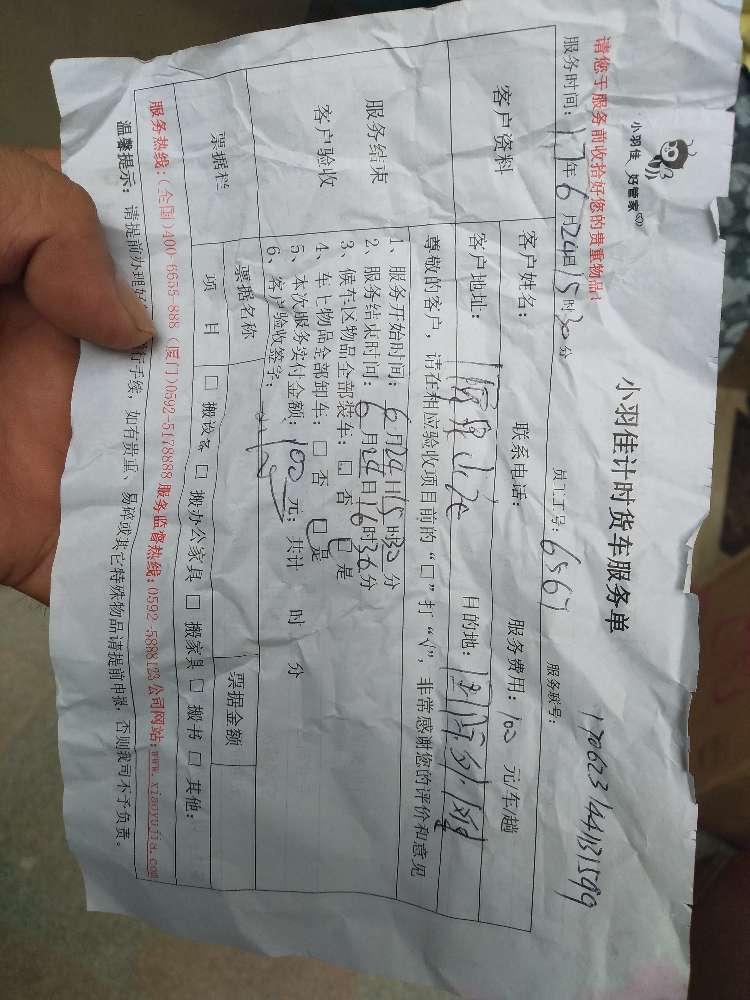 小羽佳 好管家
小羽佳计时货车服务单
170623144131599
请您于服务前收拾好您的贵重物品!
服务时间: 17年6月24日15时30分 员工工号: 6567 服务账号:
客户资料
客户姓名: 联系电话: 服务费用: 100 元/车/趟
客户地址: 目的地:
尊敬的客户, 请在相应验收项目前的“□”打“√”, 非常感谢您的评价和意见
服务结束
客户验收
1、服务开始时间: 6月24日15时30分
2、服务结束时间: 6月24日16时36分
3、候车区物品全部装车: □ 否 □ 是
4、车上物品全部卸车: □ 否 □ 是
5、本次服务实付金额: 100 元; 共计 时 分
6、客户验收签字:
票据栏
票据名称 票据金额
项 目 □ 搬设备 □ 搬办公家具 □ 搬家具 □ 搬书 □ 其他:
服务热线: (全国)400-6655-888 (厦门)0592-5178888 服务监督热线: 0592-5888123 公司网站: www.xiaoyujia.com
温馨提示: 请提前办理好 行手续, 如有贵重、易碎或其它特殊物品请提前申报, 否则我司不予负责。